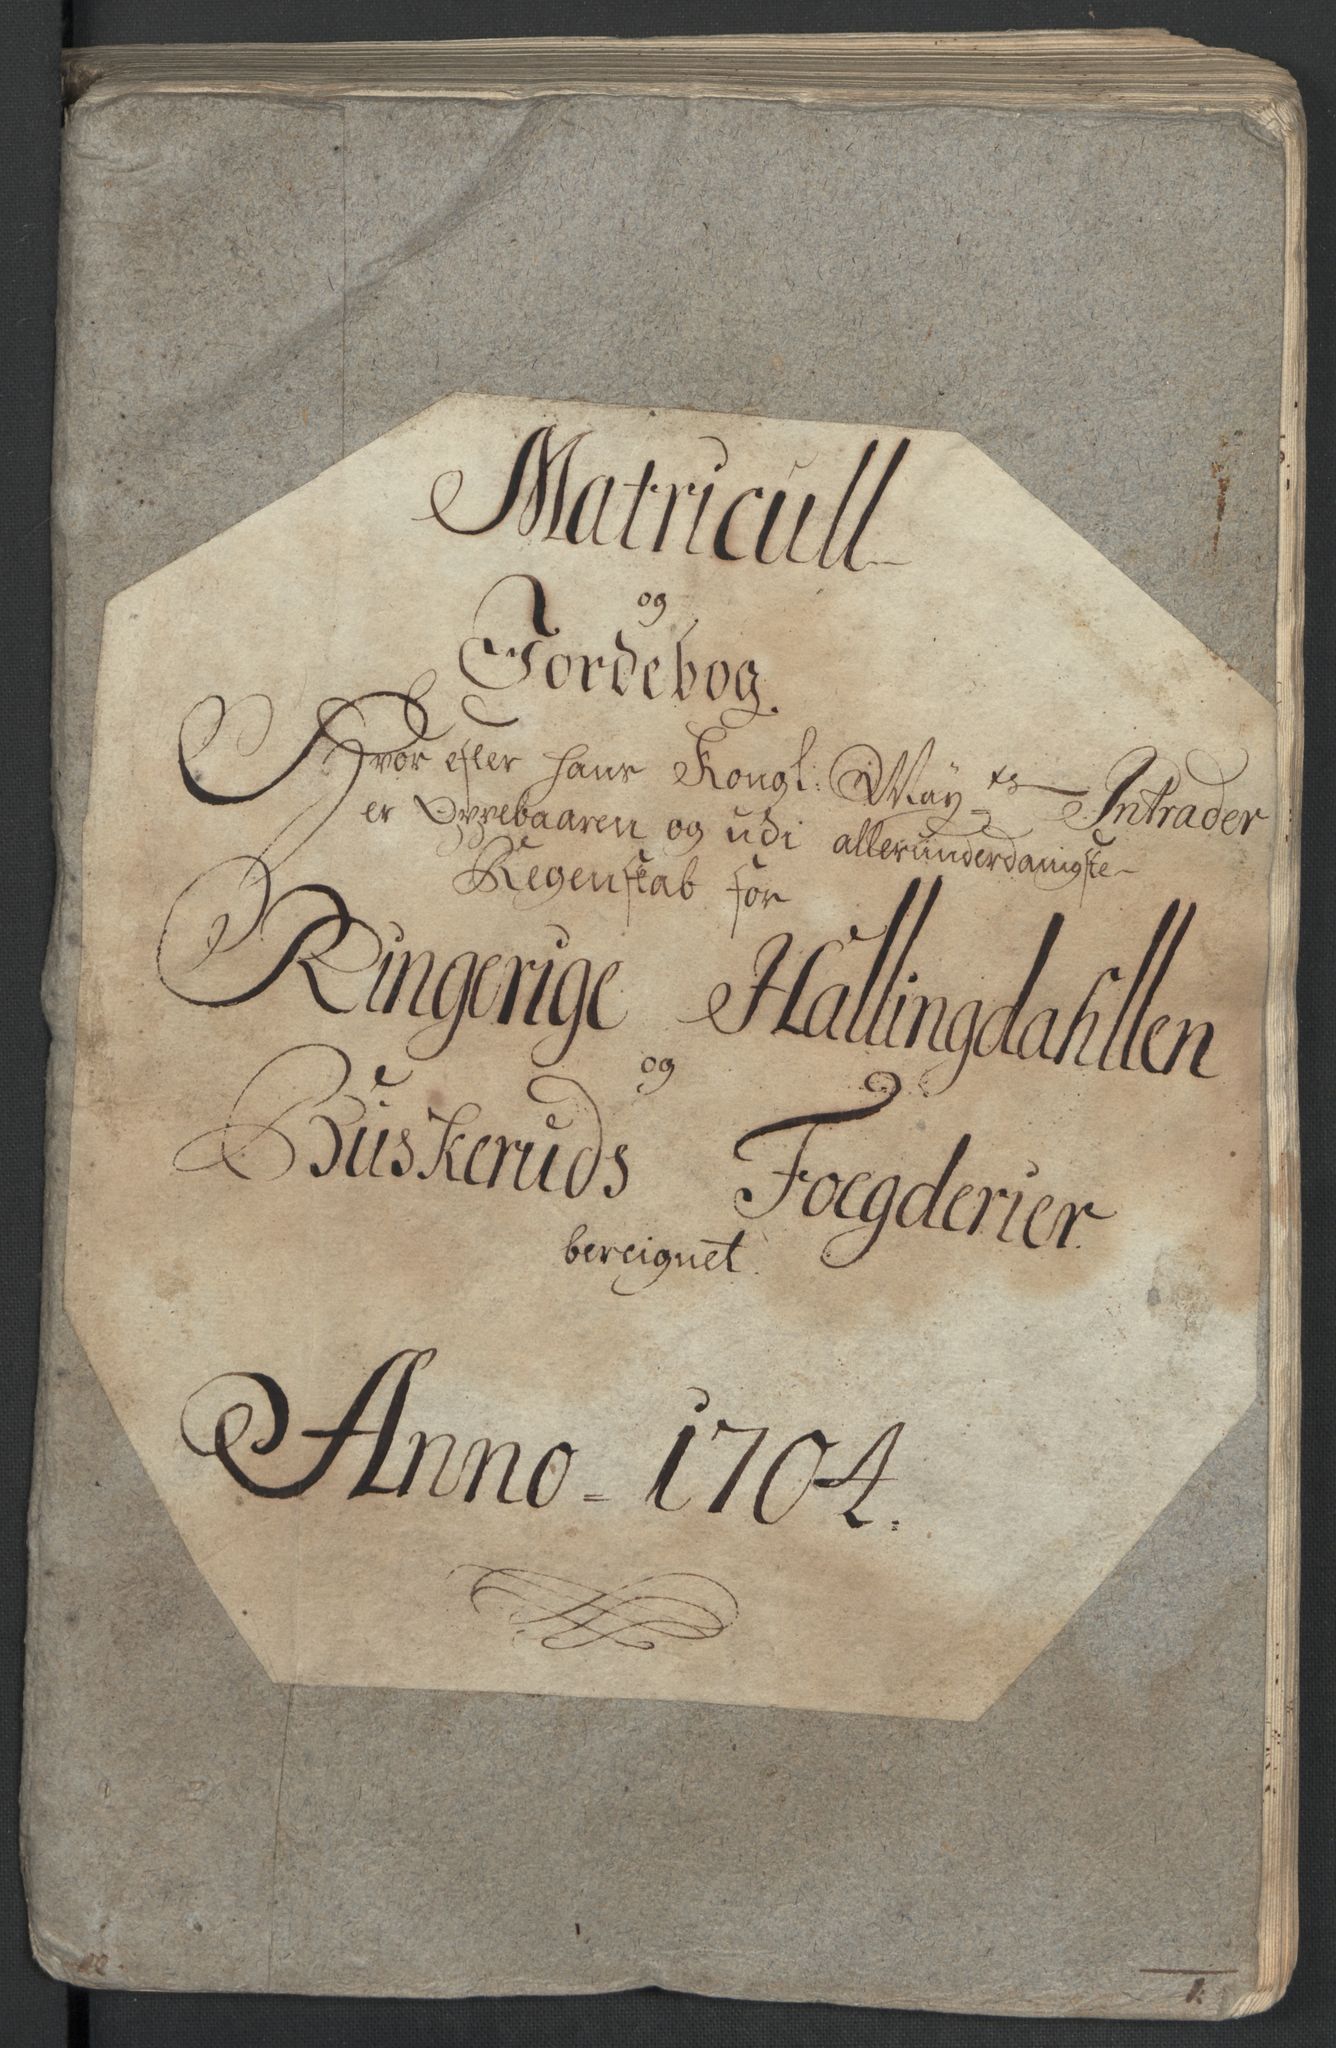 Matricull
og
Jordebog
Hvor efter hans Kongl: May ts Intrader
er Oppebaaren og udi allerunderdanigste
Regenskab for
Ringerige Hallingdahllen
og
Buskeruds Foegderier
bereignet
Anno - 1704.
1: